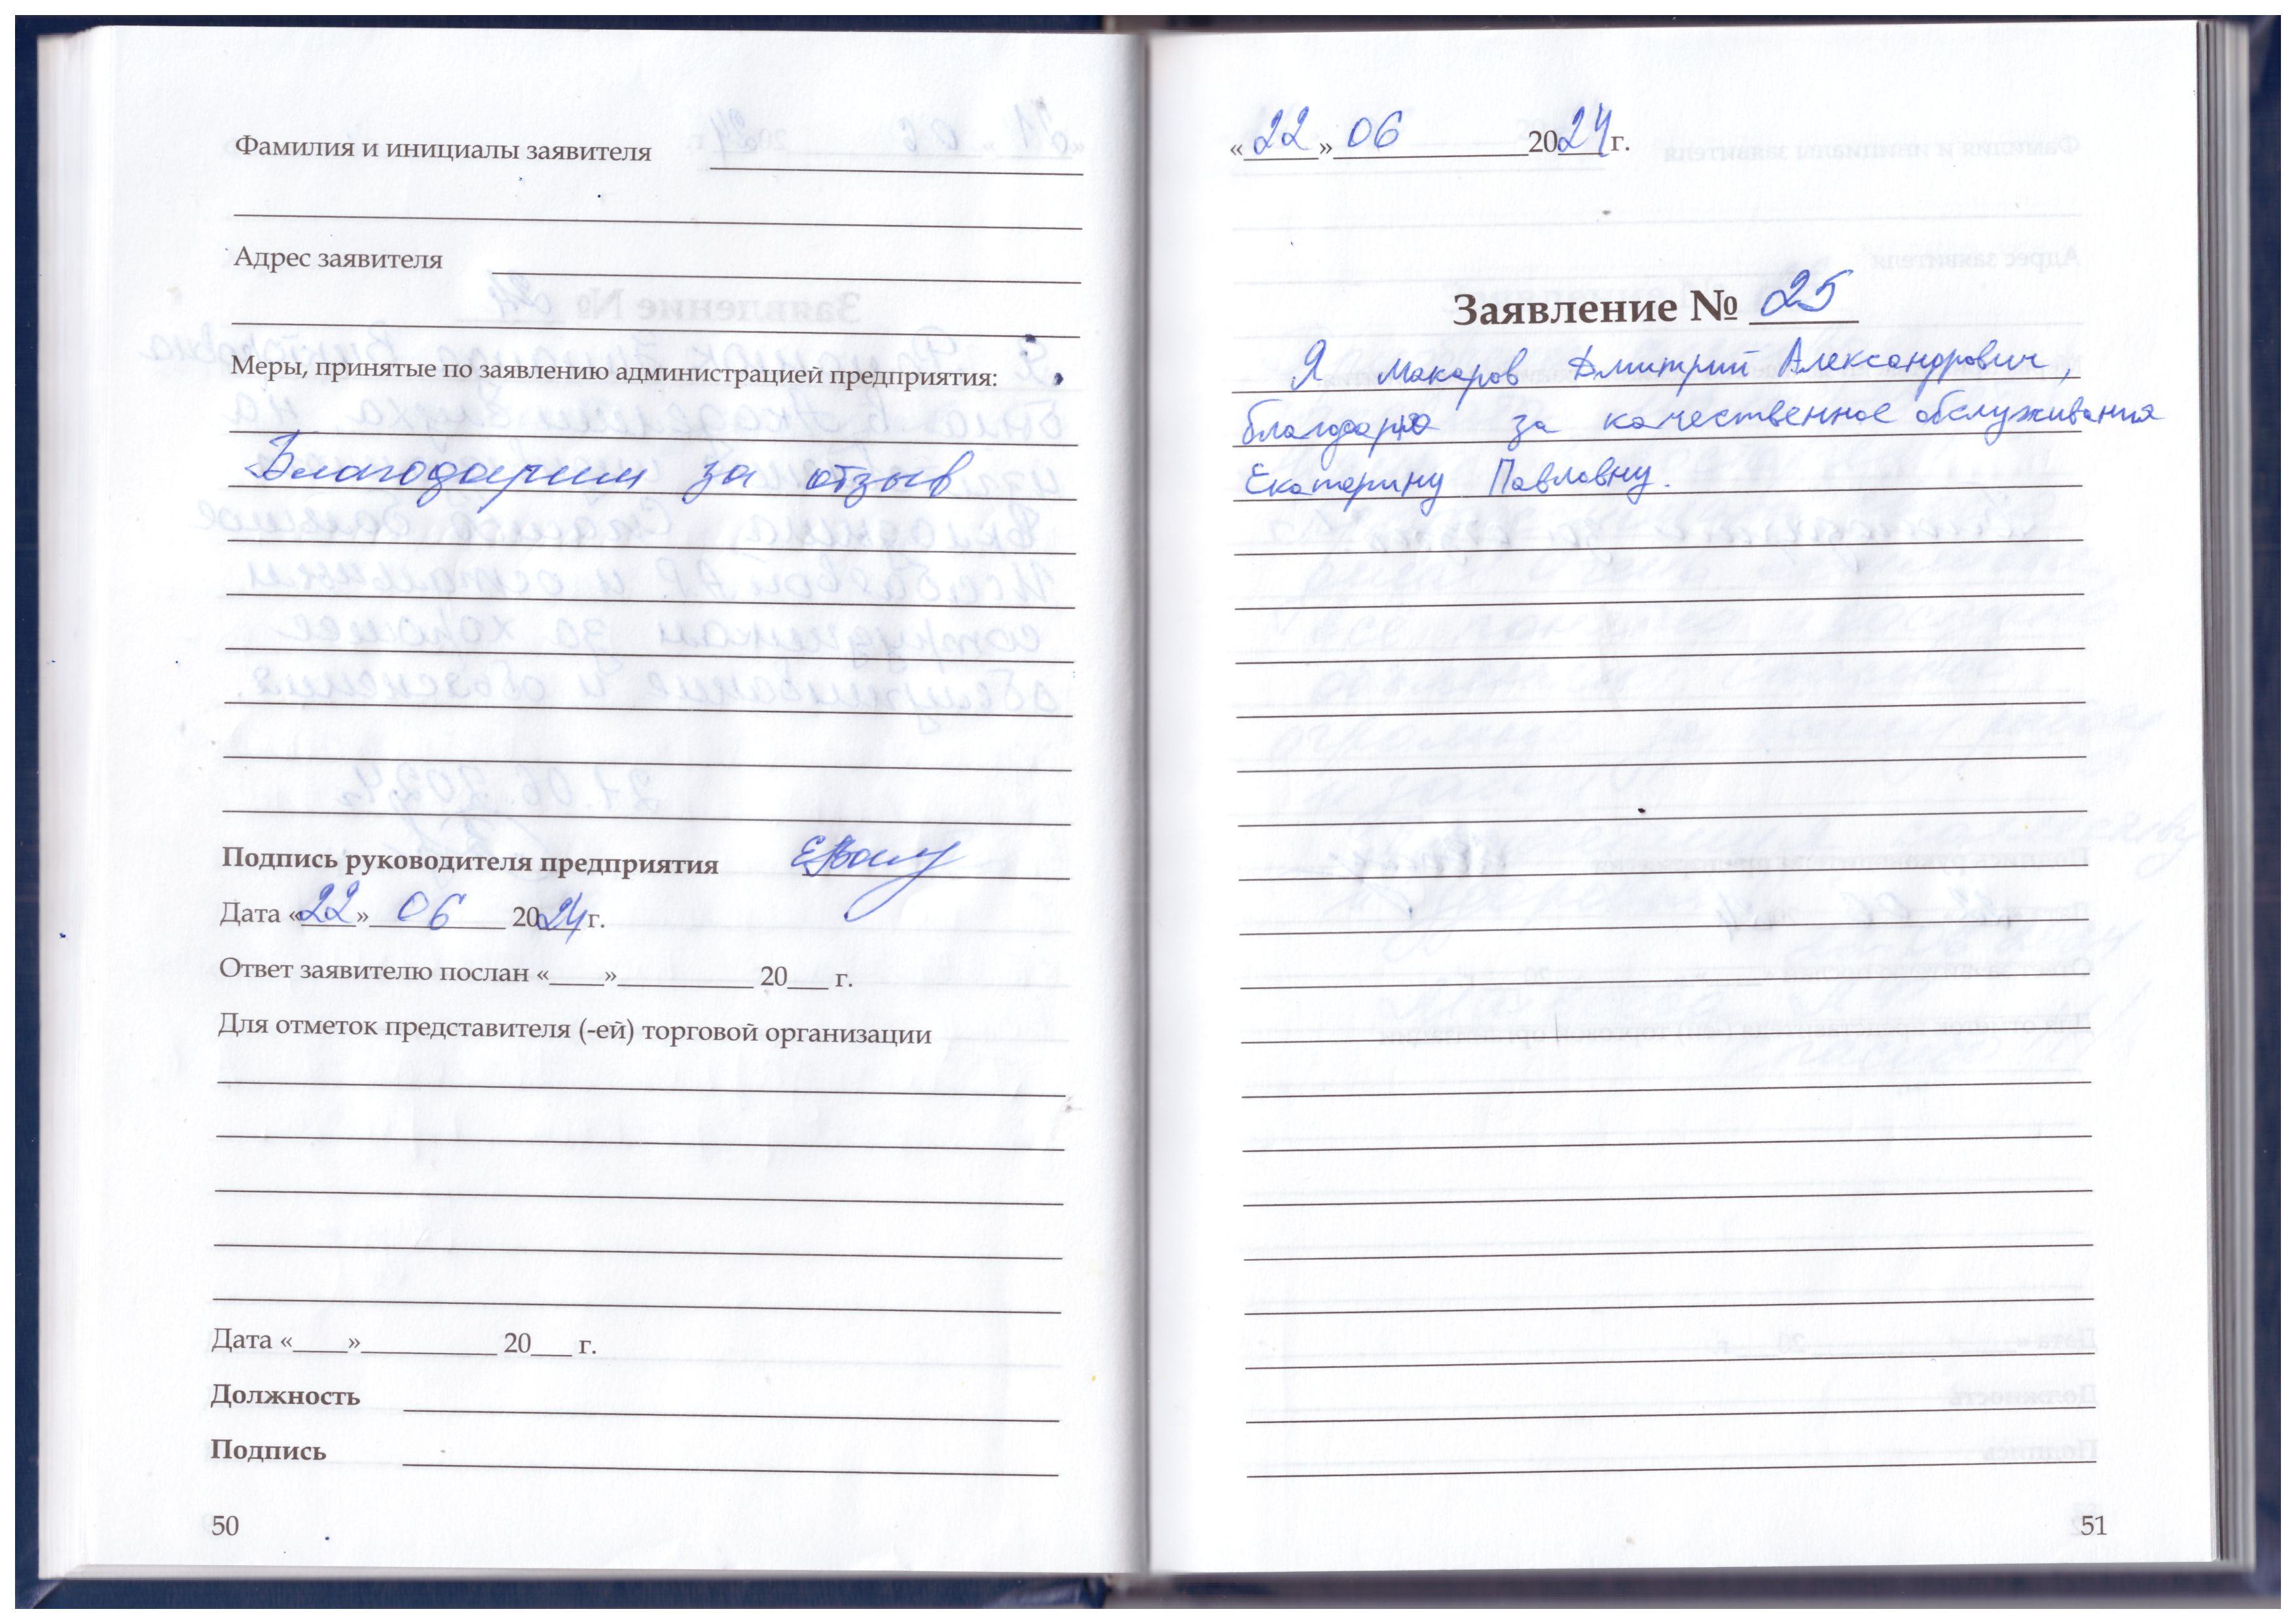 Фамилия и инициалы заявителя
Адрес заявителя
Меры, принятые по заявлению администрацией предприятия:
Благодарим за отзыв
Подпись руководителя предприятия
Дата «22» 06 2024 г.
Ответ заявителю послан «____»__________ 20___ г.
Для отметок представителя (-ей) торговой организации
Дата «____»__________ 20___ г.
Должность
Подпись
50
«22» 06 2024 г.
Заявление № 25
Я Макаров Дмитрий Александрович,
благодарю за качественное обслуживания
Екатерину Павловну.
51